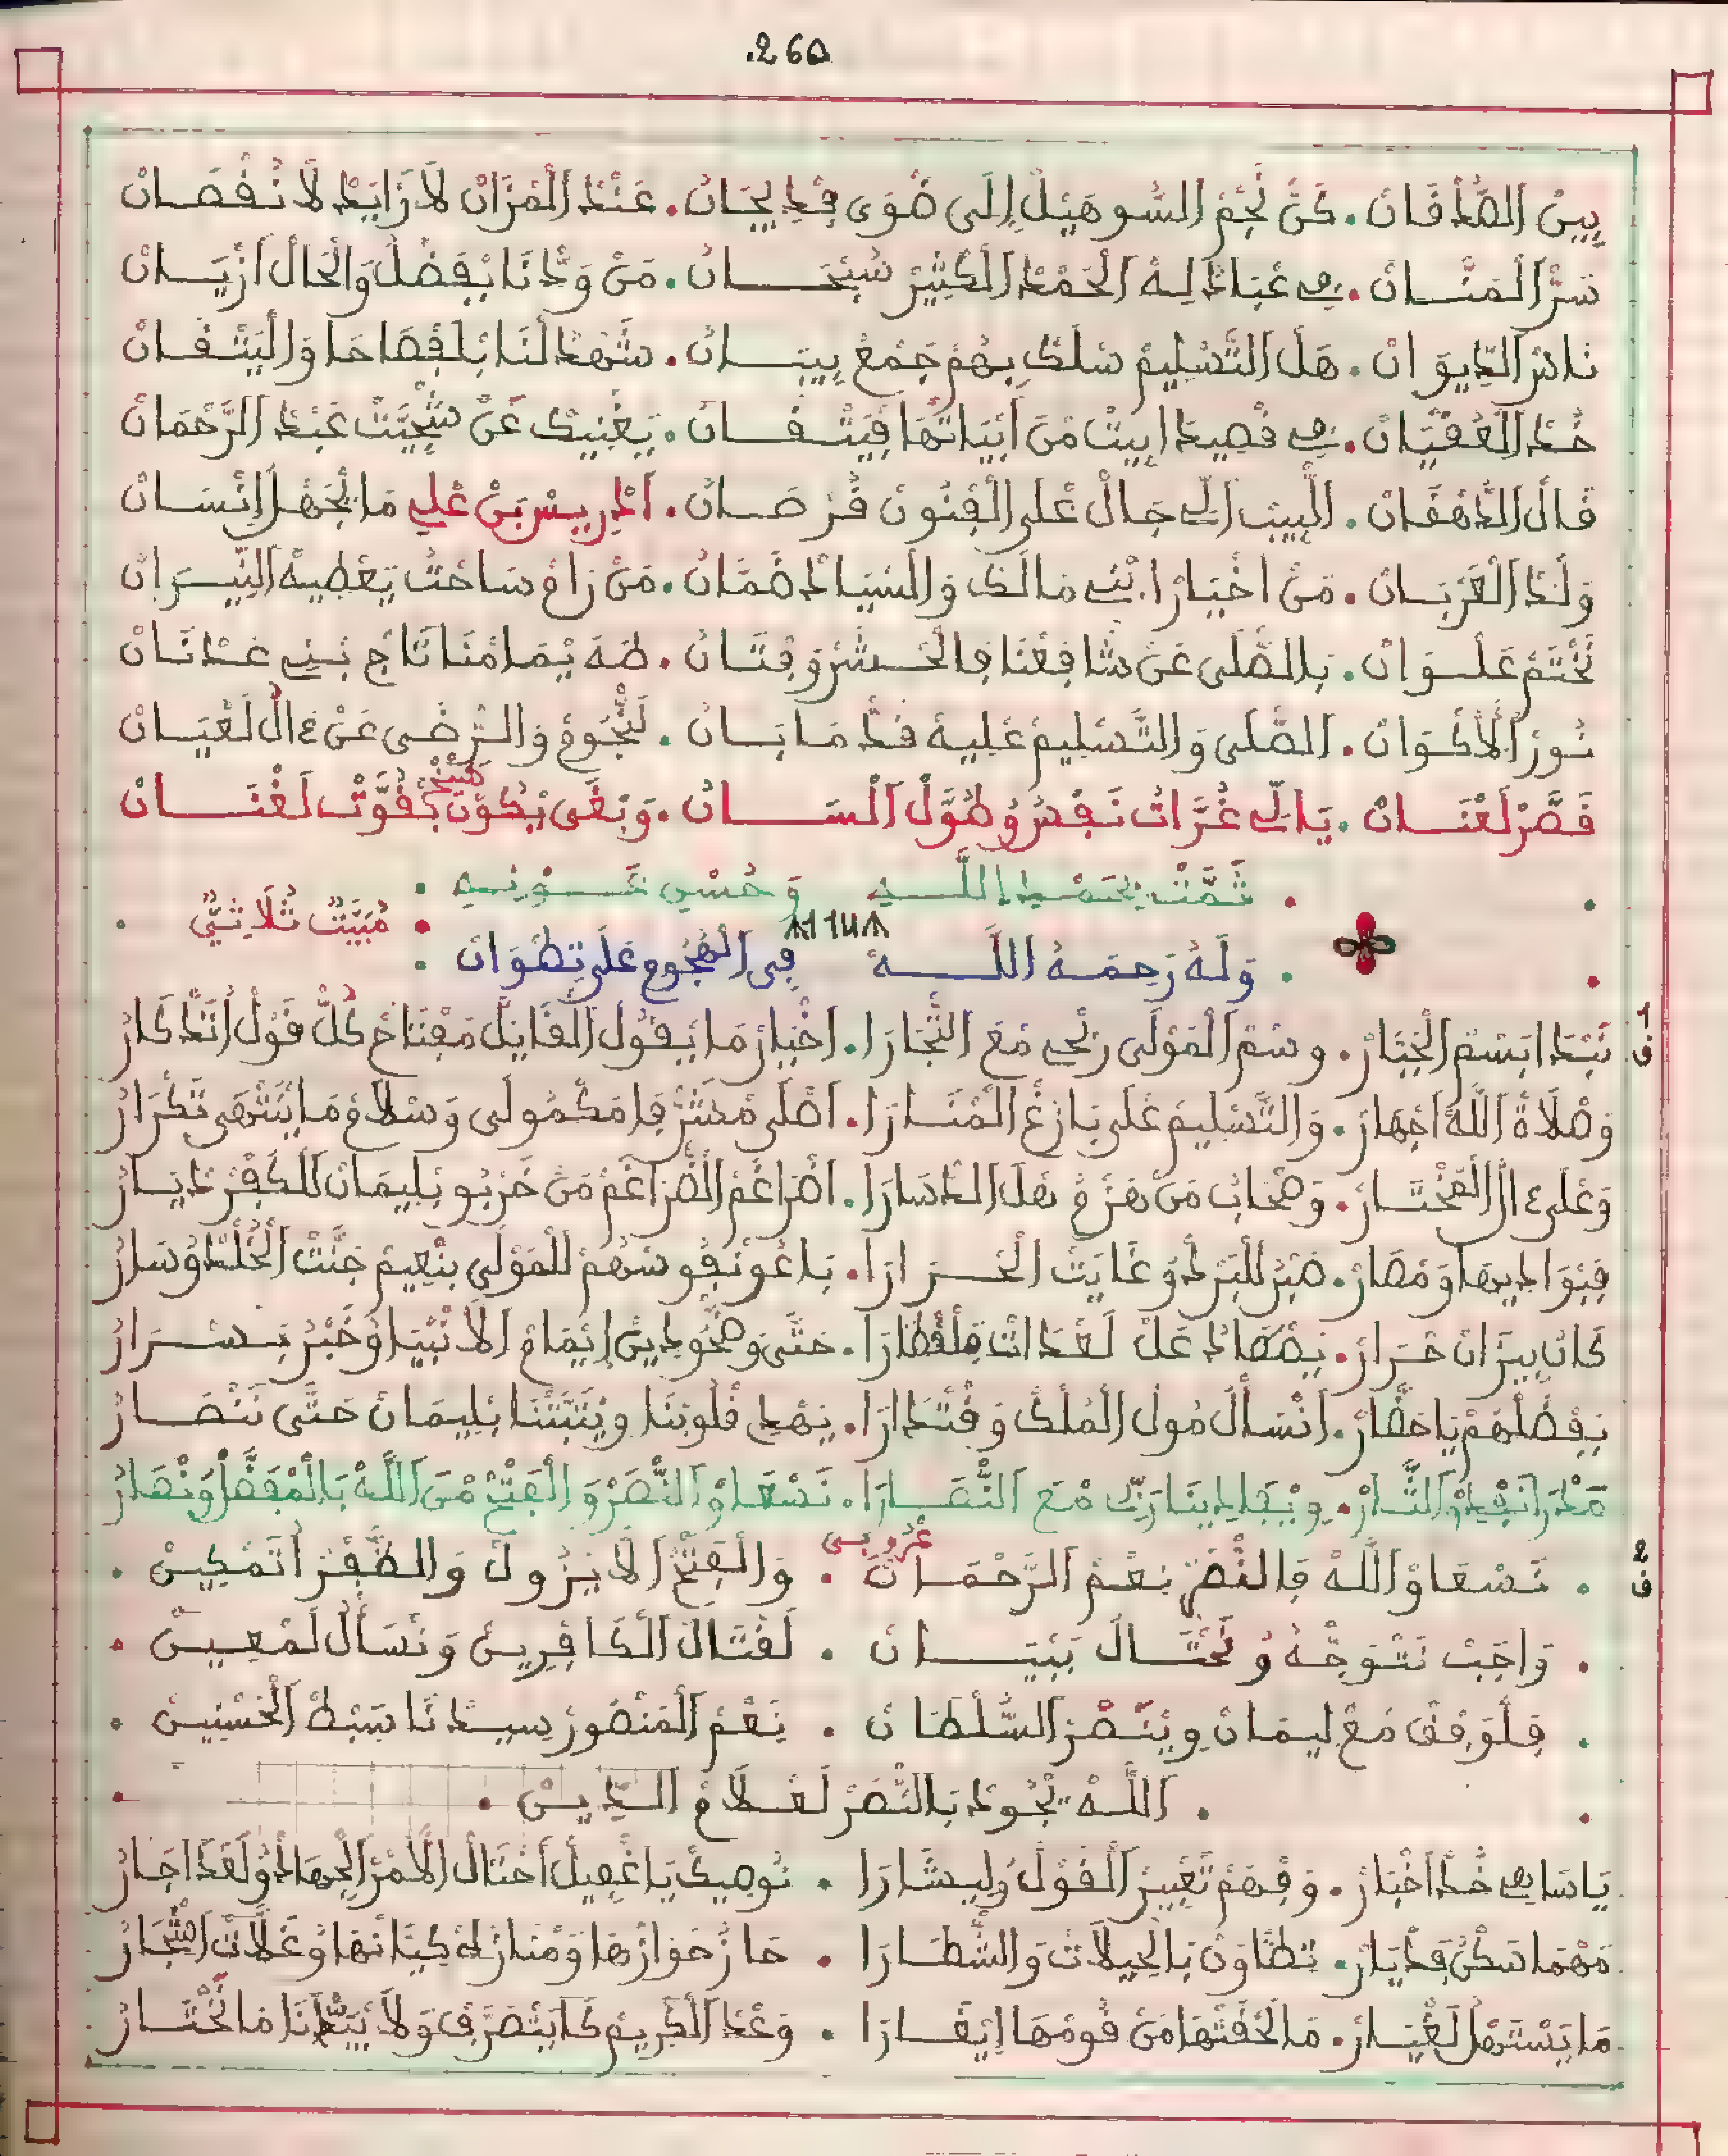 .260
بِينْ اَلصَّدْفَانْ. كَنَّ نَجْمْ السُّوهَيْلْ إِلَى ضْوَى فِدِيجَانْ. عَنْدْ اَلْمَزَانْ لَا زَايَدْ لَا نُقْصَانْ
سَرّْ اَلْمَنَّانْ. فِي عْبَادْ لِهْ اَلْحَمْدْ اَلْكْثِيرْ سُبْحَانْ. مَنْ وَدّْنَا بْفَضْلْ وَالْحَالْ اَزْيَانْ
نَاشْرْ اَلدِّيوَانْ. هَلْ اَلتَّسْلِيمْ سَلْكْ بِهُمْ جَمْعْ بِيبَانْ. شَهْدْ لْنَا بْلَفْصَاحَا وَالْيَتْقَانْ
خُدْ اَلْعُقْيَانْ. فِي قْصِيدَا بِيتْ مَنْ اَبْيَاتْهَا فِيتْقَانْ. يَغْنِيكْ عَنْ شْجِيَّتْ عَبْدْ اَلرَّحْمَانْ
قَالْ اَلدَّهْقَانْ. اَلْبِيبْ اَلِّي جَالْ عْلَى الْفْنُونْ فُرْصَانْ. اَدْرِيسْ بَنْ عْلِي مَا يْجَهْلْ اِنْسَانْ
وَلْدْ اَلْعَرْبَانْ. مَنْ اَخْيَارْ اَبْنِي مَالَكْ وَالسْيَادْ ضَمَّانْ. مَنْ زَامْ سَاحْتُ يَعْطِيهْ النِّيرَانْ
نَخْتَمْ عَلْوَانْ. بِالصَّلَى عَنْ شَافِعْنَا فَالْحَشْرْ وَفِتَانْ. طَهَ يْمَامْنَا تَاجْ بَنِي عَدْنَانْ
نُورْ اَلْأَكْوَانْ. اَلصَّلَى وَالتَّسْلِيمْ عْلِيهْ قَدّْ مَا بَانْ. لَنْجُومْ وَالرّْضَى عَنْ ءَالْ لَعْيَانْ
قَصَّرْ لَعْنَانْ. يَا لِّي غُرَّاتُ نَفْسُ وُطُوَّلْ اَلْسَانْ. وَبْغَى يْكُونْ شَيْخْ كْقُوَّتْ لَغْنَانْ
. تَمَّتْ بِحَمْدِ اللَّهِ وَحُسْنِ عَوْنِهِ .
. مُبَيَّتْ ثُلَاثِيّْ .
. وَلَهُ رَحِمَهُ اللَّهُ فِي الْهُجُومِ عَلَى تِطْوَانْ .
1 ف
نَبْدَا بَسْمْ الْجَبَّارْ. وسْمْ اَلْمَوْلَى رْبْحِي مْعَ التّْجَارَا. اَخْيَارْ مَا يَقُولْ اَلْقَايَلْ مَفْتَاحْ كُلّْ قَوْلْ اَنْدْكَارْ
وَصْلَاةْ اَللَّهْ اَجْهَارْ. وَالتَّسْلِيمْ عْلَى بَازَغْ الْمْنَارَا. اَصْلَى مَشَرّْفَا مَكْمُولَى وَسْلَامْ مَا يَنْتْهَى تَكْرَارْ
وَعْلَى ءَالْ اَلْمَخْتَارْ. وَصْحَابْ مَنْ هَزَمْ هَلْ الدّْسَارَا. اَضْرَاغَمْ اَلضّْرَاغَمْ مَنْ خَرْبُو بَلِيمَانْ اَلْكَفْرْ دْيَارْ
فِبْوَادِيهَا وَمْصَارْ. صَبْرْ لَلْبَرْدْ وُغَايَتْ الْحْرَارَا. بَاعُو نْفُوسْهُمْ لَلْمَوْلَى بَنْعِيمْ جَنَّتْ اَلْخُلْدْ وُسَارْ
كَانْ بِيزَانْ حْرَارْ. يَصْطَادْ عَلْ لَعْدَاتْ فَلْقْطَارَا. حَتَّى وَضْحُو دِينْ اِيمَامْ اَلَانْبْيَا وُخَبْرْ بَسْرَارْ
بَفْضْلْهُمْ يَا حَضَّارْ. اَنْسْأَلْ مُولْ اَلْمُلْكْ وَقْتْدَارَا. يَهْدِي قْلُوبْنَا وِيثَبَّتْنَا بَلِيمَانْ حَتَّى نَنْصَارْ
وِيْجَا دِينَا رَبِّي مْعَ النّْصَارَا. نَسْعَاوْ النّْصَرْ وَالْفَتْحْ مْنَ اللَّهْ بَالْمْفَضَّلْ وَنْصَارْ
2 ف
عْرُوبِي
. نَسْعَاوْ اَللَّهْ فَالنّْصَرْ نَعْمْ اَلرَّحْمَانْ . وَالْفَتْحْ اَلَا يْزُولْ وَالظّْفَرْ اَتَمْكِينْ .
. وَاجَبْ نَتْوَجَّهْ وُنَحْتَالْ بَبْيَانْ . لَقْتَالْ اَلْكَافْرِينْ وَنَسْأَلْ لَمْعِينْ .
. فَلْوَفْقْ مْعْ لِيمَانْ وِينَصْرْ السُّلْطَانْ . نَعْمْ اَلْمَنْصُورْ سِيدْنَا سَبْطْ اَلْحَسْنِينْ .
. اَللَّهْ يْجُودْ بَالنّْصَرْ لَعْلَامْ اَلدِّينْ .
يَا سَاهِي خُدْ اَخْبَارْ. وَفْهَمْ تَعْبِيرْ اَلْقَوْلْ وُلِيشَارَا . نُوصِيكْ يَا غْفِيلْ اَحْتَالْ اَلَامْرْ اَلْجِهَادْ وُلَعْدَا جَارْ
مَهْمَا سَكْنْ فَدْيَارْ. تَطَّاوَنْ بَالْحِيلَاتْ وَالشّْطَارَا . حَازْ حْوَازْهَا وَمْنَازَلْ كِيتَانْهَا وُغَلَّاتْ اَشْجَارْ
مَا يَسْتَهْلْ لَعْيَارْ. مَا لَحْقَتْهَا مَنْ قُومْهَا اِيغَارَا . وَعْدْ اَلْكْرِيمْ كَا يَتْصَرَّفْ وَلَا بْيَدّْنَا مَا نَخْتَارْ